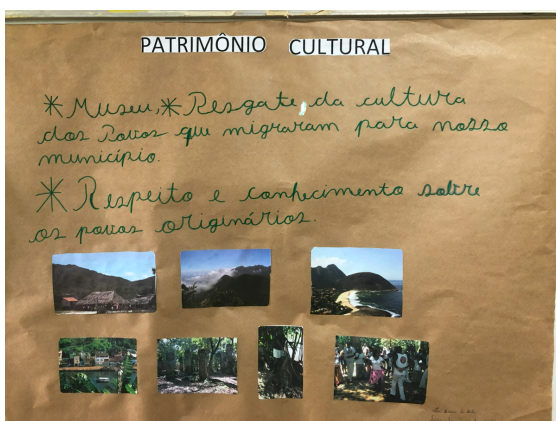 PATRIMÔNIO CULTURAL
* Museu, * Resgate da cultura
dos Povos que migraram para nosso
município.
* Respeito e conhecimento sobre
os povos originários.